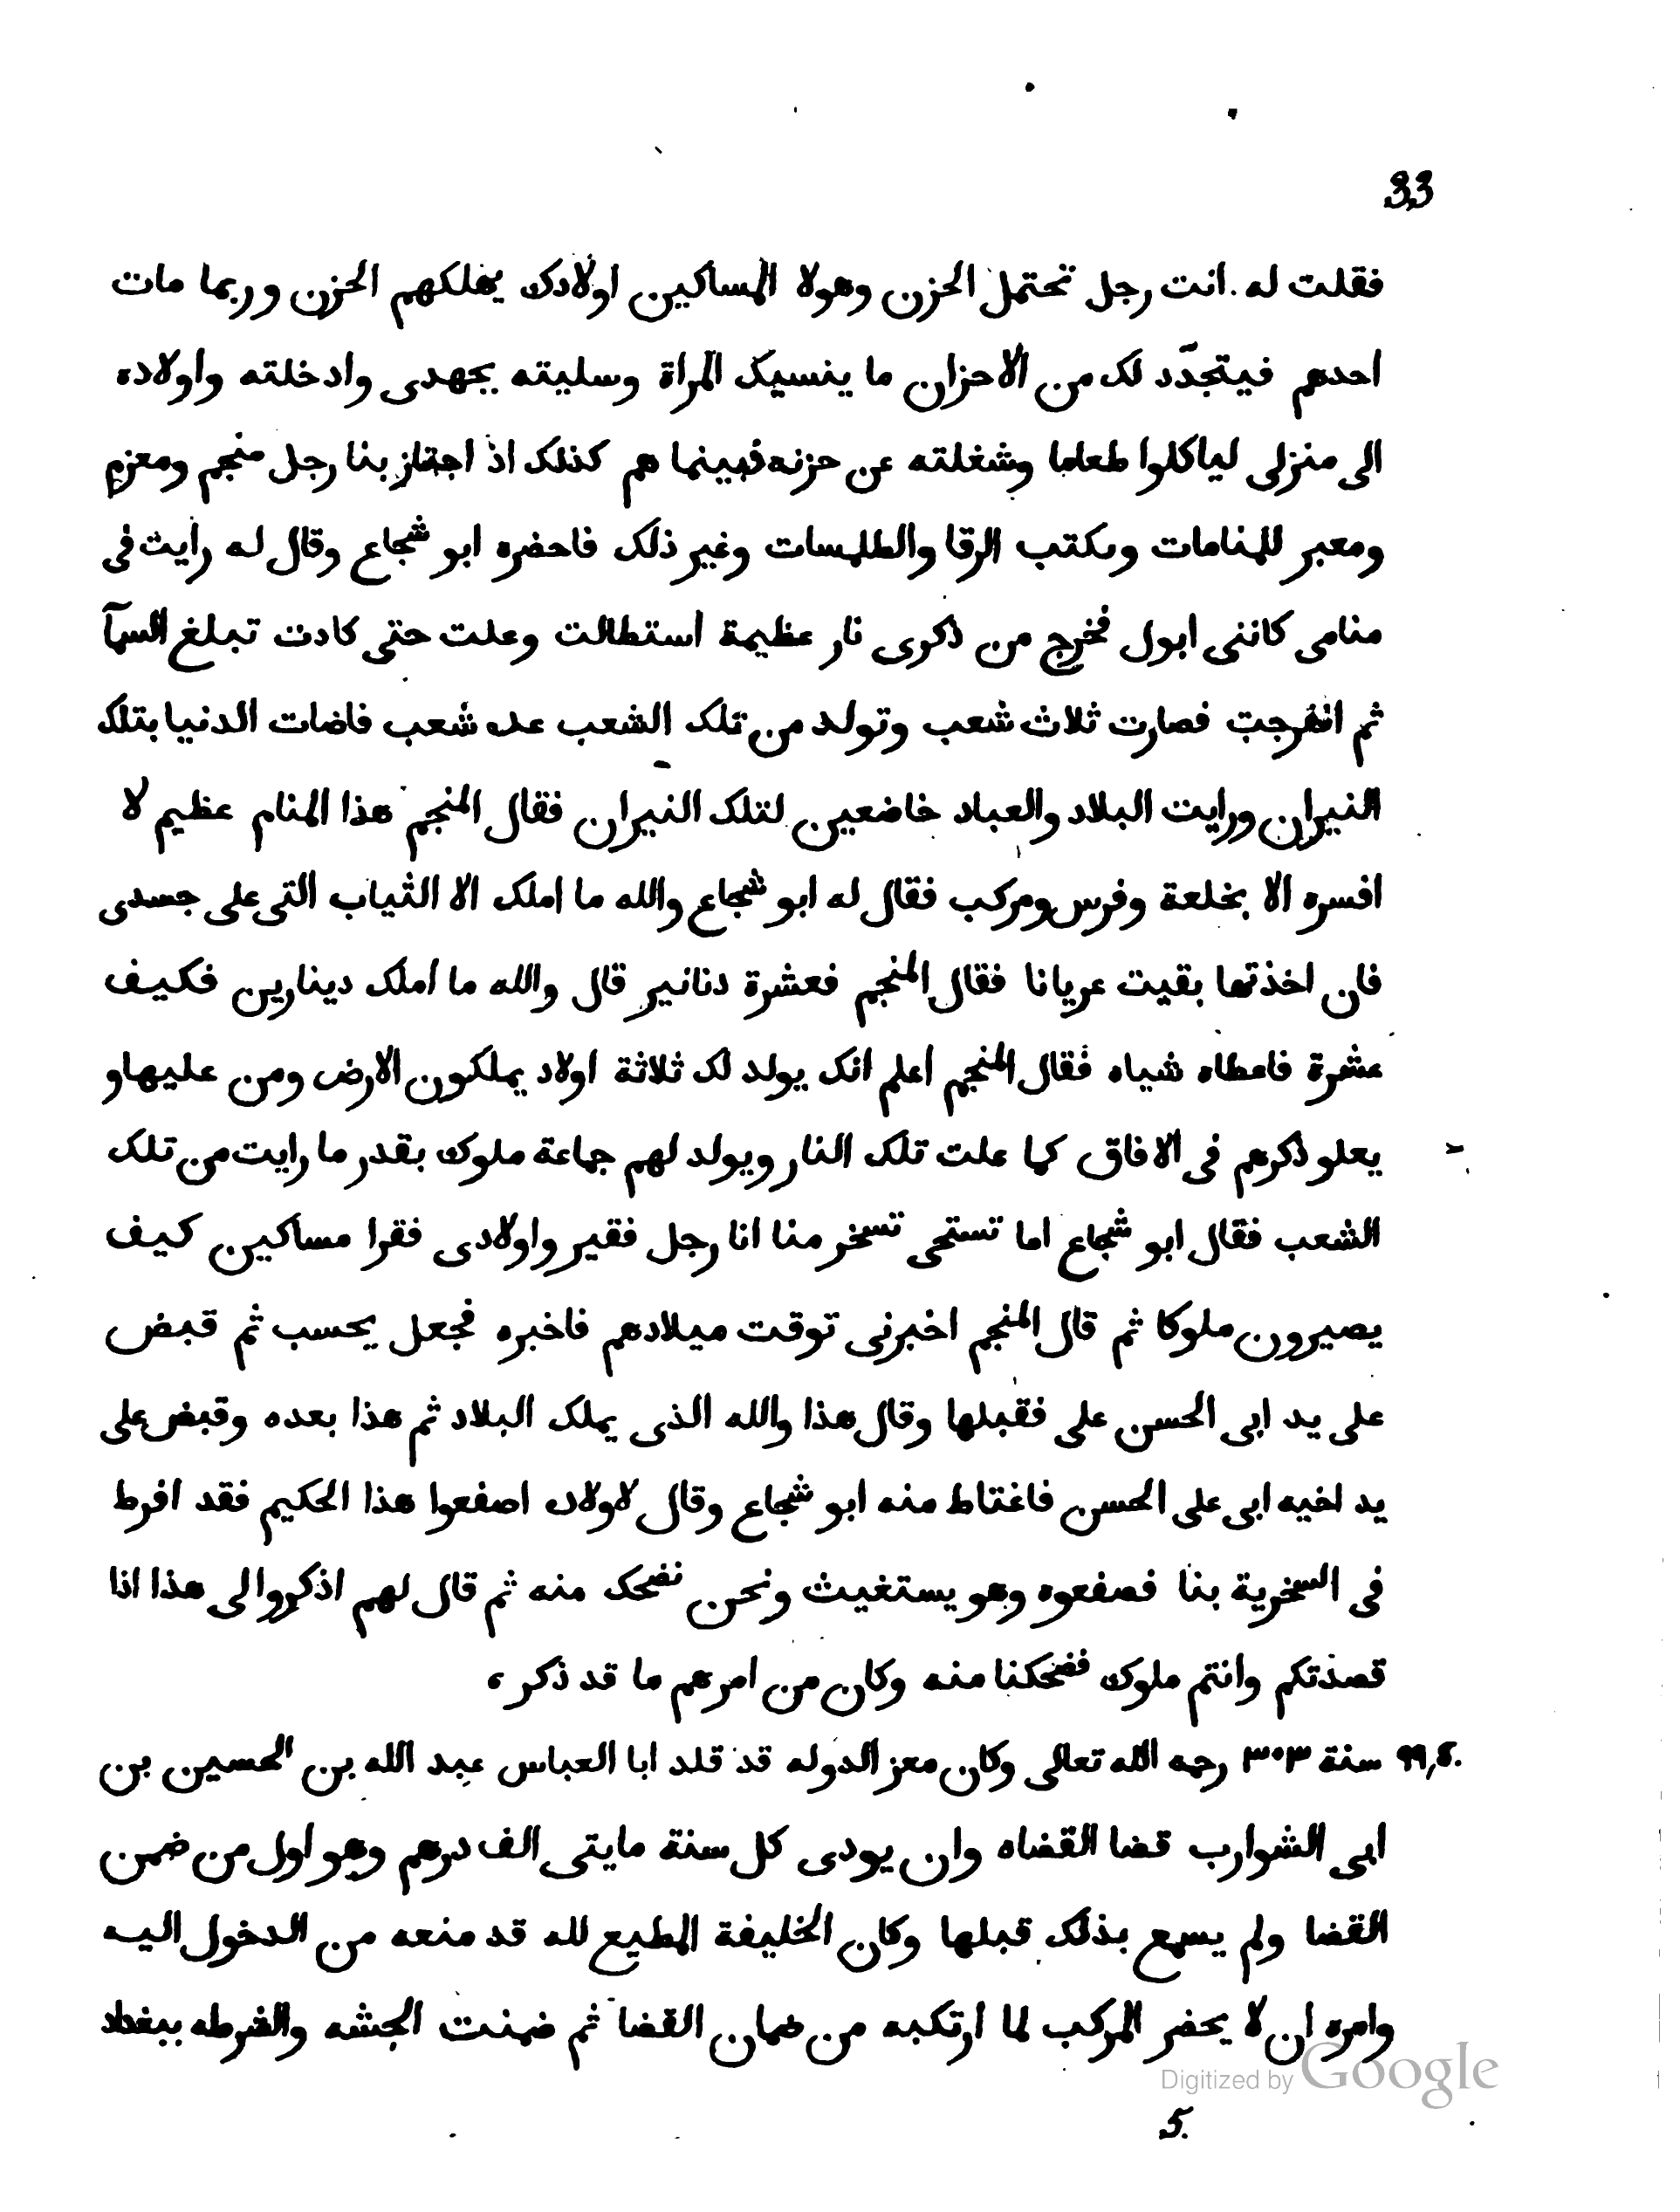 33
فقلت له انت رجل تحتمل الحزن وهولا المساكين اولادك يهلكهم الحزن وربما مات
احدهم فيتجدّد لك من الاحزان ما ينسيك المراة وسليته بجهدى وادخلته واولاده
الى منزلى لياكلوا طعاما وشغلته عن حزنه فبينما هم كذلك اذ اجتاز بنا رجل منجم ومعزم
ومعبر للمنامات وىكتب الرقا والطلسمات وغير ذلك فاحضره ابو شجاع وقال له رأيت فى
منامى كاننى ابول فخرج من ذكرى نار عظيمة استطالت وعلت حتى كادت تبلغ السمآ
ثم انفرجت فصارت ثلاث شعب وتولد من تلك الشعب عده شعب فاضات الدنيا بتلك
النيران ورايت البلاد والعباد خاضعين لتلك النيران فقال المنجم هذا المنام عظيم لا
افسره الا بخلعة وفرس ومركب فقال له ابو شجاع والله ما املك الا الثياب التى على جسدى
فان اخذتها بقيت عريانا فقال المنجم فعشرة دنانير قال والله ما املك دينارين فكيف
عشرة فاعطاه شياه فقال المنجم اعلم انك يولد لك ثلاثة اولاد يملكون الارض ومن عليها و
يعلو ذكرهم فى الافاق كما علت تلك النار ويولد لهم جماعة ملوك بقدر ما رايت من تلك
الشعب فقال ابو شجاع اما تستحى تسخر منا انا رجل فقير واولادى فقرا مساكين كيف
يصيرون ملوكا ثم قال المنجم اخبرنى توقت ميلادهم فاخبره فجعل يحسب ثم قبض
على يد ابى الحسن على فقبلها وقال هذا والله الذى يملك البلاد ثم هذا بعده وقبض على
يد اخيه ابى على الحسن فاغتاط منه ابو شجاع وقال لاولاده اصفعوا هذا الحكيم فقد افرط
فى السخرية بنا فصفعوه وهو يستغيث ونحن نضحك منه ثم قال لهم اذكروا لى هذا اذا
قصدتكم وانتم ملوك فضحكنا منه وكان من امرهم ما قد ذكر،
سنة ٣٠٣ رحمه الله تعالى وكان معز الدوله قد قلد ابا العباس عبد الله بن الحسين بن
ابى الشوارب قضا القضاه وان يودى كل سنة مايتى الف درهم وهو اول من ضمن
القضا ولم يسمع بذلك قبلها وكان الخليفة المطيع لله قد منعه من الدخول اليه
وامره ان لا يحضر المركب لما ارتكبه من ضمان القضا ثم ضمنت الجشه والشرطه ببغداد
Digitized by Google
5.